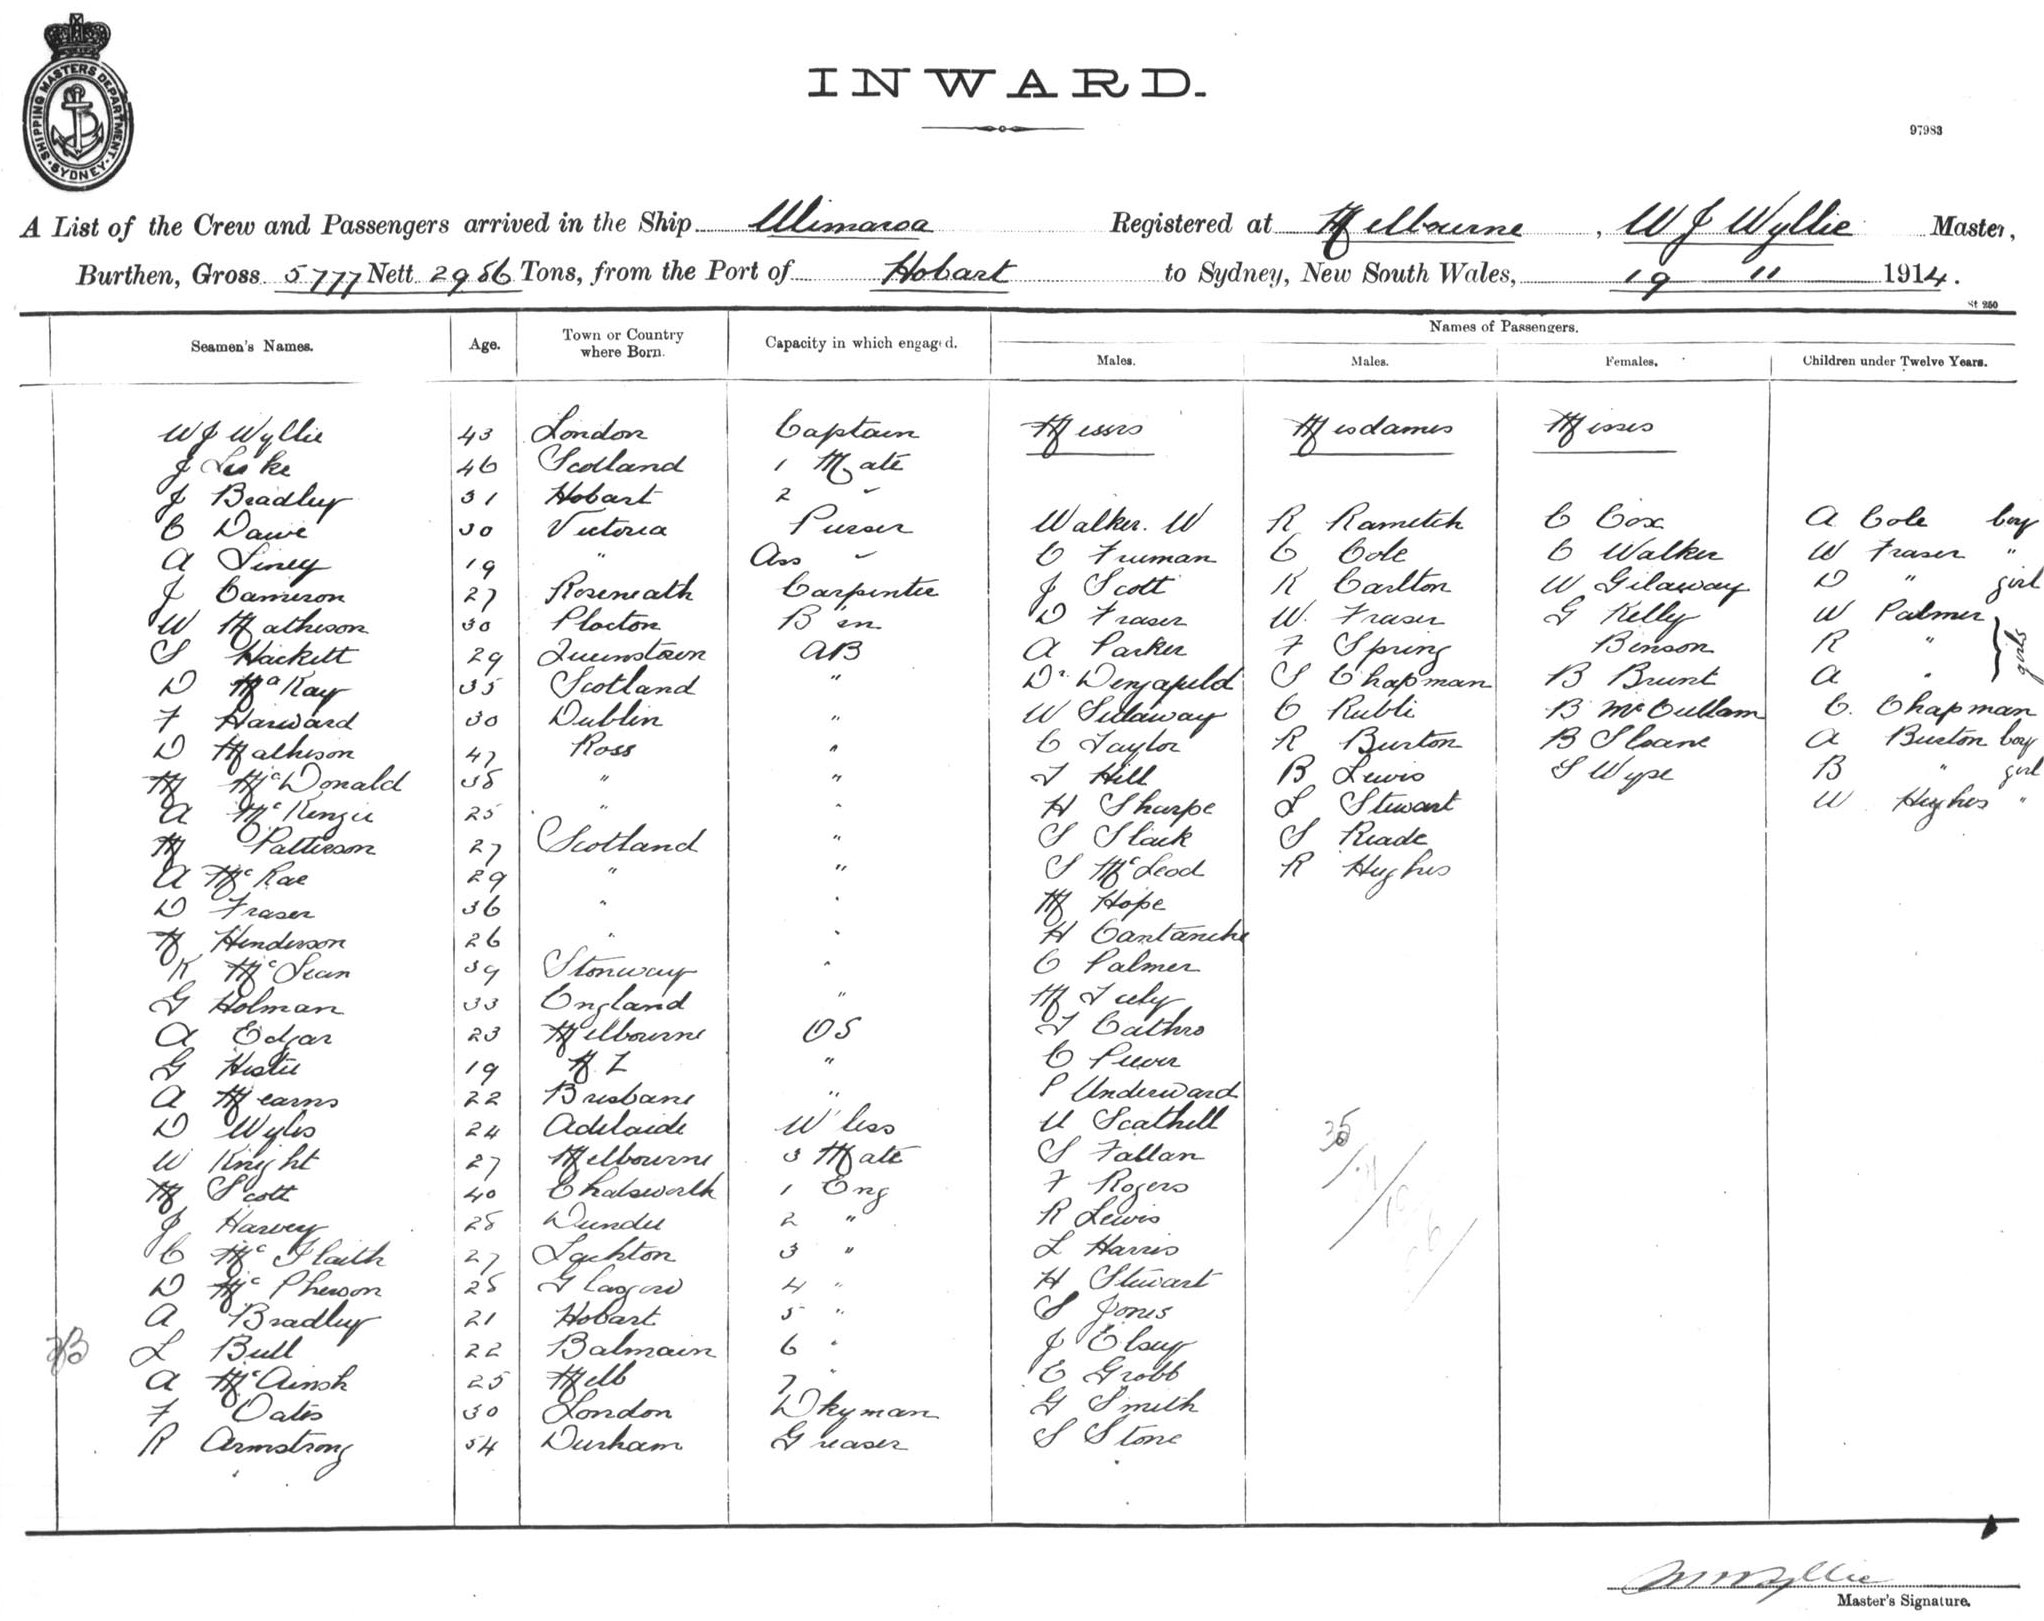 SHIPPING MASTERS DEPARTMENT. SYDNEY
INWARD.
97983
A List of the Crew and Passengers arrived in the Ship Ulimaroa Registered at Melbourne, W J Wyllie Master,
Burthen, Gross 5777 Nett 2956 Tons, from the Port of Hobart to Sydney, New South Wales, 19 11 1914.
St 250
Seamen's Names. Age. Town or Country where Born. Capacity in which engaged. Names of Passengers.
Males. Males. Females. Children under Twelve Years.
W J Wyllie 43 London Captain Messrs Mesdames Misses
J Leske 46 Scotland 1 Mate
J Bradley 31 Hobart 2 "
C Dawe 30 Victoria Purser Walker. W R Rametch C Cox A Cole boy
A Siney 19 " Ass " C Truman C Cole C Walker W Fraser "
J Cameron 27 Roseneath Carpenter J Scott K Carlton W Gilaway D " girl
W Mathison 30 Plocton B'sn D Fraser W. Fraser G Kelly W Palmer
S Hackett 29 Queenstown AB A Parker F Spring Benson R " girls
D McKay 35 Scotland " Dr S Chapman B Brunt A "
F Harward 30 Dublin " W Sidaway C Rubli B McCullam C. Chapman
D Mathison 47 Ross " C Taylor R Burton B Sloane A Burton boy
M McDonald 38 " " T Hill B Lewis S Wyse B " girl
A McKenzie 25 " " H Sharpe L Stewart W Hughes "
M Patterson 27 Scotland " S Slack S Reade
A McRae 29 " " S McLeod R Hughes
D Fraser 36 " " M Hope
M Henderson 26 " " H Cantanche
K McLean 39 Stonway " C Palmer
G Holman 33 England " M
A Edgar 23 Melbourne OS T Cathro
G Hestie 19 N Z " C
A Mearns 22 Brisbane " P Underward
D Wyles 24 Adelaide W'less U Scathell
W Knight 27 Melbourne 3 Mate S Fallan
M Scott 40 Chatsworth 1 Eng F Rogers
J Harvey 28 Dundee 2 " R Lewis
C Mc 27 3 " L Harris
D McPherson 28 Glasgow 4 " H Stewart
A Bradley 21 Hobart 5 " S Jones
L Bull 22 Balmain 6 " J Elsey
A McAinsh 25 Melb 7 " E Grobb
F Oates 30 London Dkyman G Smith
R Armstrong 54 Durham Greaser S Stone
Master's Signature.